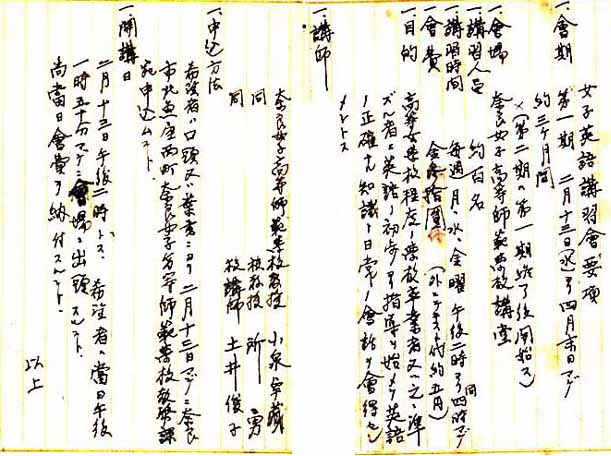 女子英語講習會要項
一、會期
第一期 二月十三日(水)ヨリ四月末日マデ
約三ケ月間
(第二期ハ第一期終了後開始ス)
一、會場 奈良女子高等師範學校講堂
一、講習人員 約百名
一、講習時間 毎週月、水、金曜午後二時ヨリ同四時マデ
一、會費 金拾圓 (外ニテキスト代約五円)
一、目的 高等女學校程度ノ學校卒業者又ハ之ニ準
ズル者ニ英語ノ初歩ヨリ指導ヲ始メテ英語
ノ正確ナル知識ト日常ノ會話ヲ會得セシ
メントス
一、講師
奈良女子高等師範學校教授 小泉
同 校教授 所 勇
同 校講師 土井俊子
一、申込方法
希望者ハ口頭又ハ葉書ニヨリ二月十二日マデニ奈良
市北魚屋西町奈良女子高等師範學校教務課
宛申込ムコト
一、開講日
二月十三日午後二時トス、希望者ハ當日午後
一時五十分マデニ會場ニ出頭スルコト、
尚當日會費ヲ納付スルコト、
以上